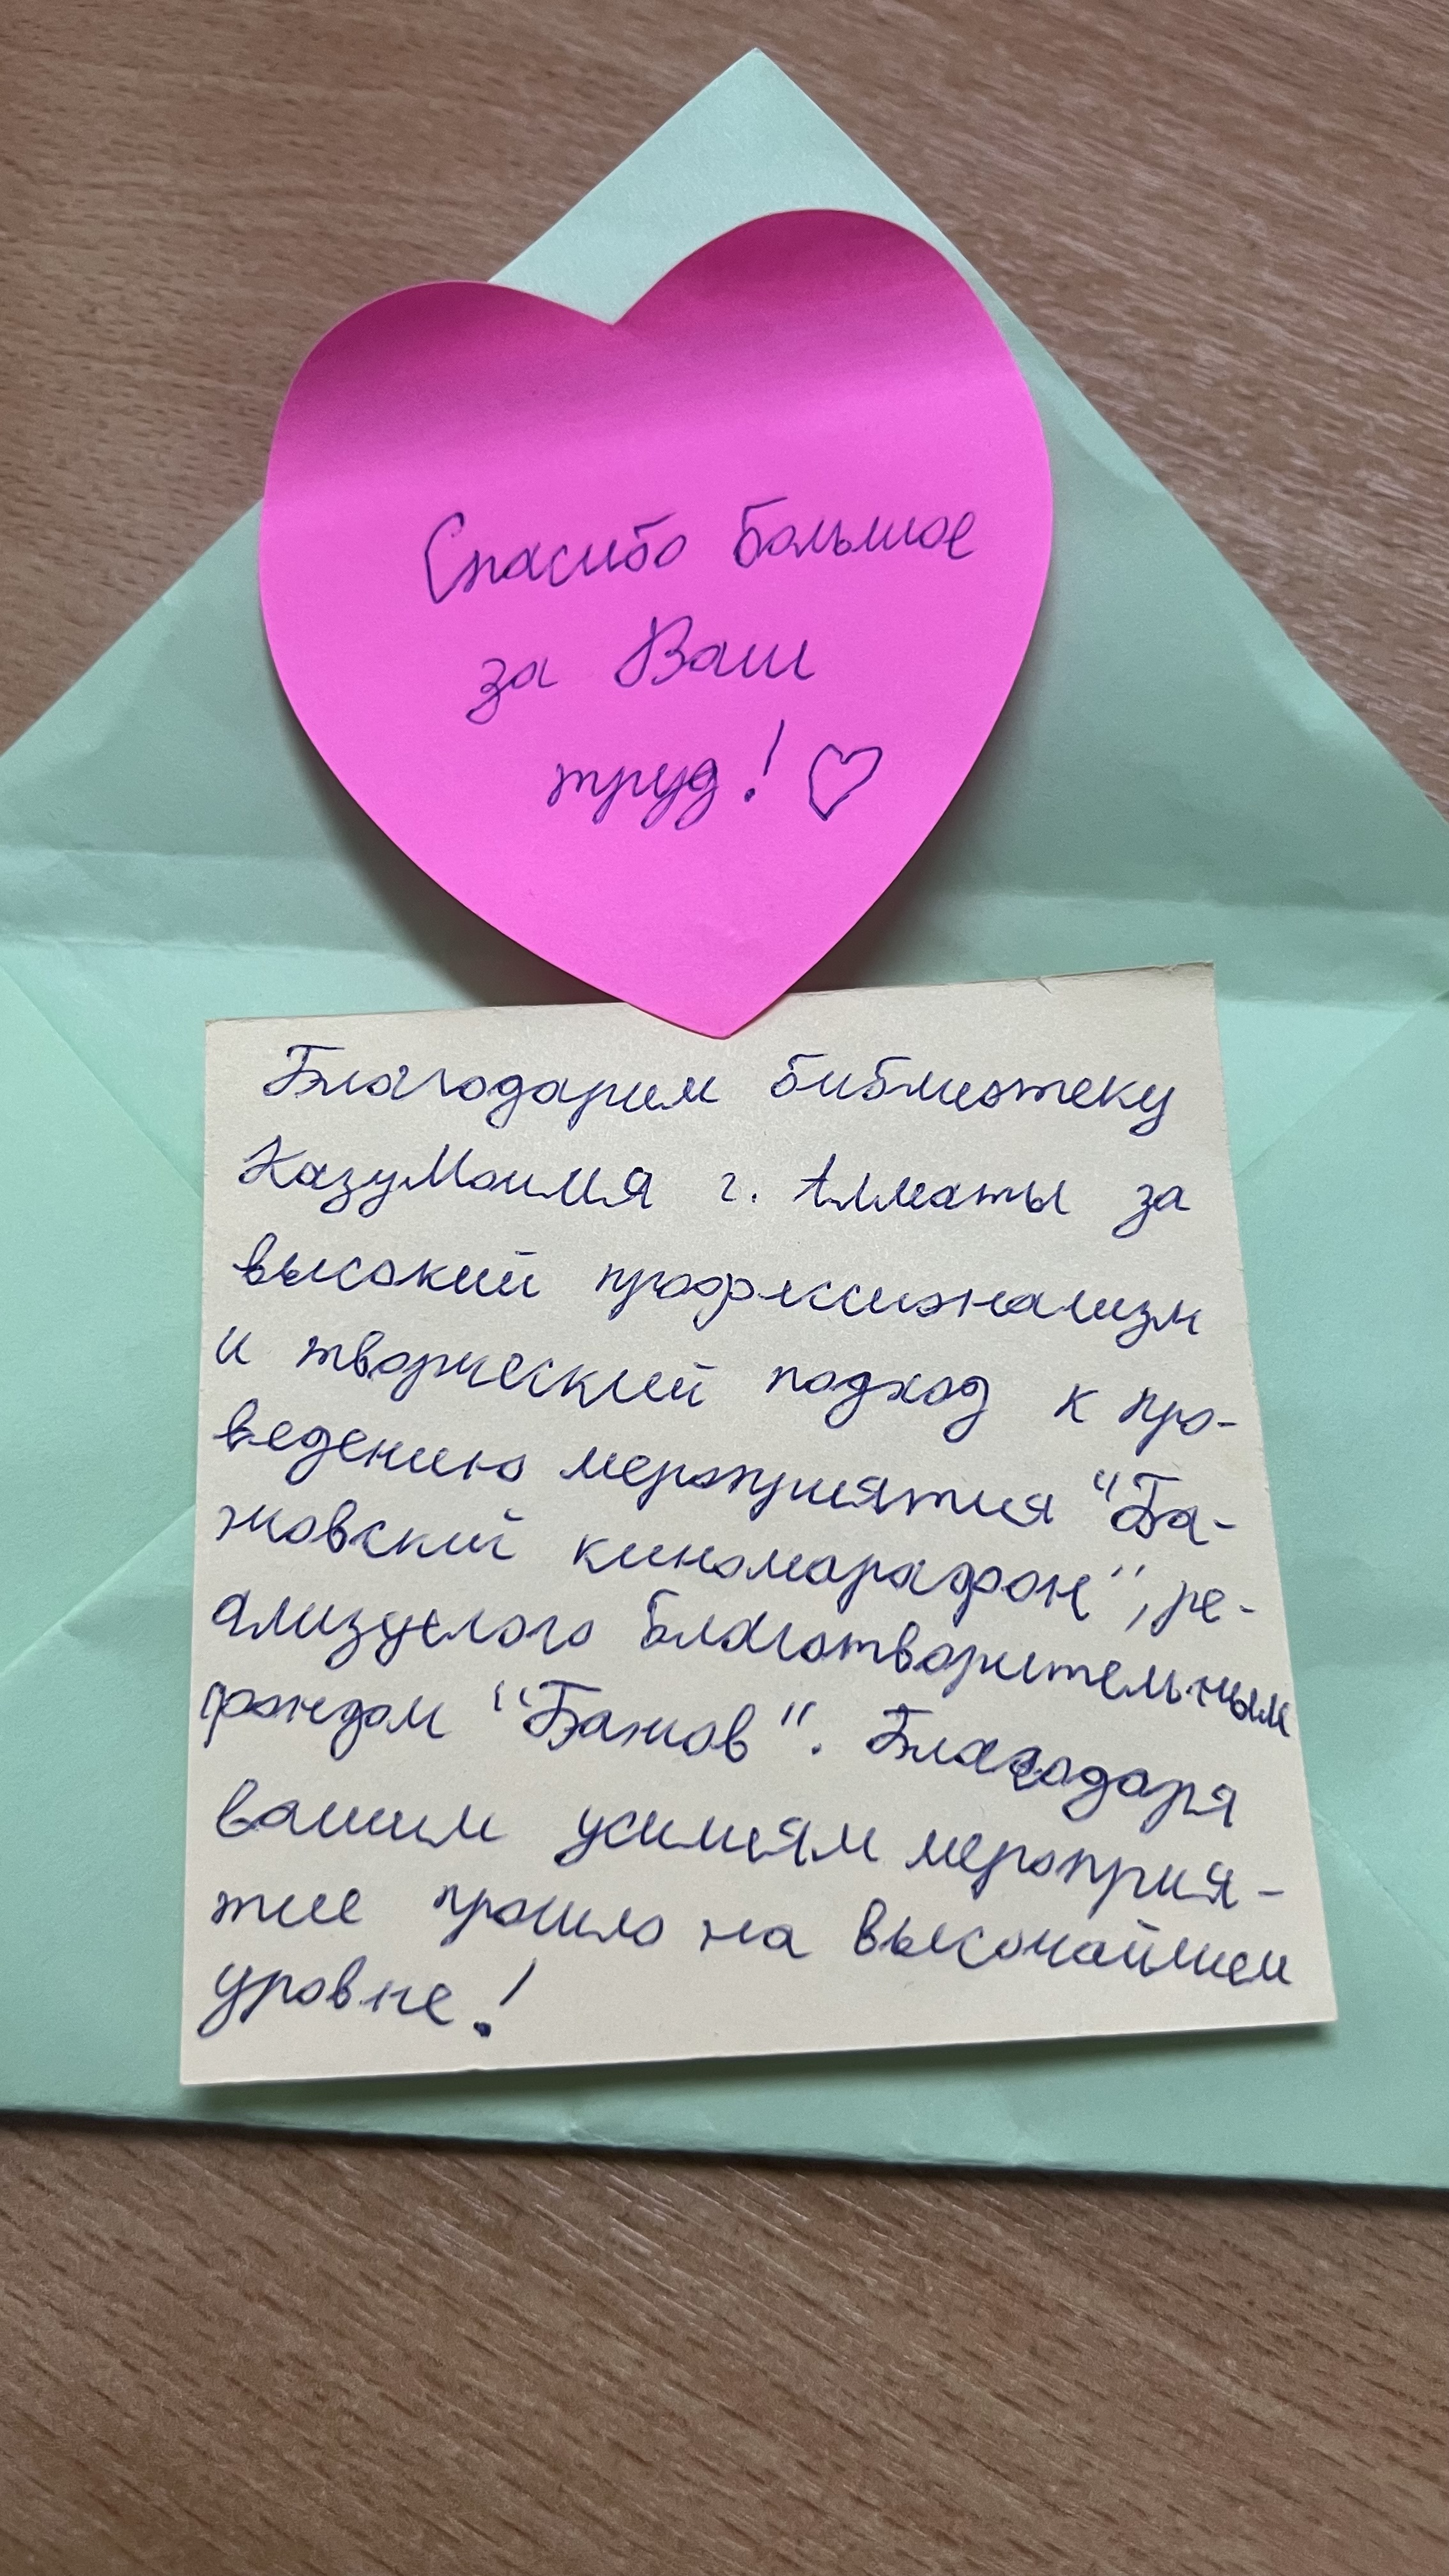 Спасибо большое
за Ваш
труд!
Благодарим библиотеку
КазУМОиМЯ г. Алматы за
высокий профессионализм
и творческий подход к про-
ведению мероприятия "Ба-
жовский киномарафон", ре-
ализуемого благотворительным
фондом "Бажов". Благодаря
вашим усилиям мероприя-
тие прошло на высочайшем
уровне!